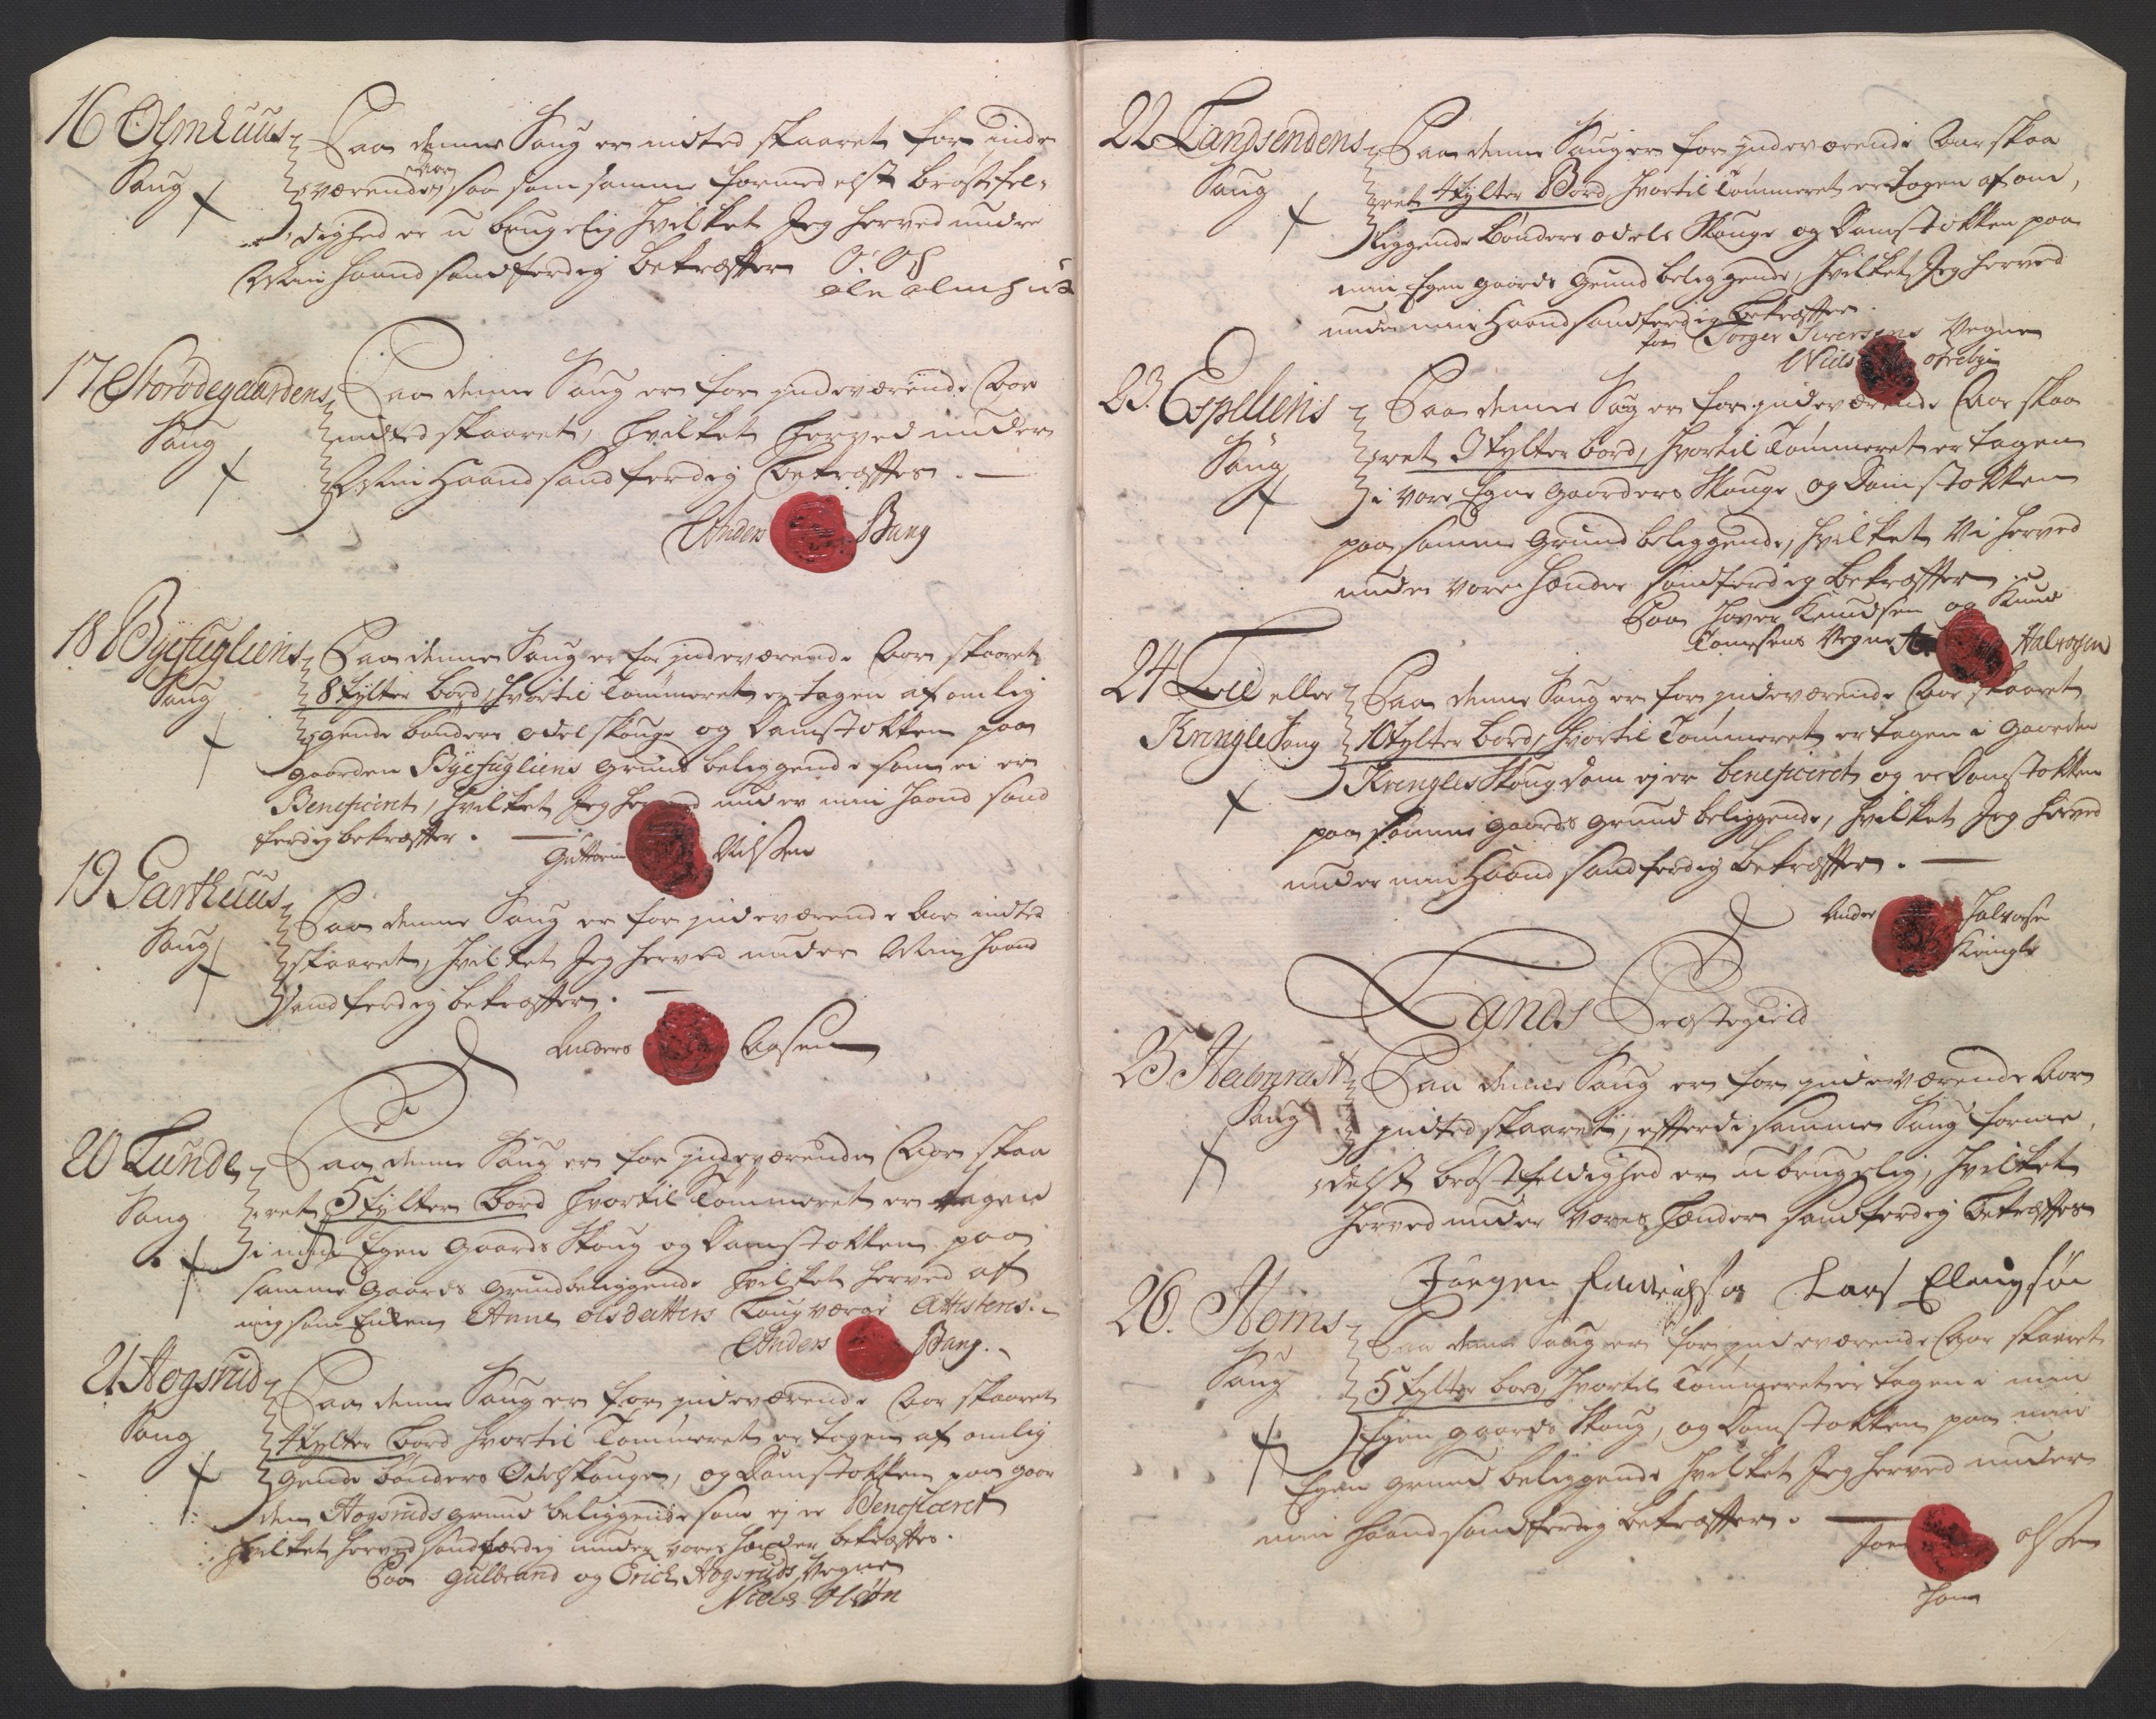 16 Olmhuus Paa denne Saug er intet skaaret for inde
Saug værende Aar saa som samme formedelst brøstfel-
dighed er u brugelig hvilket Jeg herved under
Min haand sandferdig bekræffter O: O S
ole olmhus
17 Storødegaardens Paa denne Saug er for indeværende Aar
Saug intet skaaret, hvilket herved under
Min Haand sandferdig bekræfftes.
Anders Bang
18 Byefugliens Paa denne Saug er for indeværende Aar skaaret
Saug 8 tylter bord, hvortil Tømmeret er tagen af omlig
gende bønders odelskouge og Damstokken paa
gaarden Byefugliens grund beliggende som ei er
Beneficeret, hvilket Jeg herved under min Haand sand
ferdig bekræffter.
Guttorm Nilsen
19 Garthuus Paa denne Saug er for indeværende Aar intet
Saug skaaret, hvilket Jeg herved under Min Haand
Sandferdig bekræffter.
Anders Aasen
20 Lunde Paa denne Saug er for indeværende Aar skaa
Saug ret 5 tylter Bord hvortil Tømmeret er tagen
i min Egen Gaards Skoug og Damstokken paa
samme Gaards grund beliggende hvilket herved af
mig som Enken Anne olsdatters Laugværge Attesteres.
Anders Bang.
21 Hogsrud Paa denne Saug er for indeværende Aar skaaret
Saug 4 tylter Bord hvortil Tømmeret er tagen af omlig
gende bønders Odelskouge, og Damstokken paa gaar
den Hogsruds grund beliggende som ej er Beneficeret
hvilket herved sandfærdig under vores hænder bekræfftes.
Paa Gulbrand og Erich Hogsruds Vegne
Niels Olsøn
22 Landsendens Paa denne Saug er for indeværende Aar skaa
Saug ret 4 tylter Bord, hvortil Tømmeret er tagen af om,
liggende bønders odels Skouge og Damstokken paa
min Egen gaards grund beliggende, hvilket Jeg herved
under min Haand sandferdig bekræffter.
for Torger Siversens Vegne
Niels
23. Espeliens Paa denne Saug er for indeværende Aar skaa
Saug ret 3 tylter bord, hvortil Tømmeret er tagen
i vore Egne Gaarders Skouge og Damstokken
paa samme grund beliggende, hvilket Vi herved
under vore hænder sandferdig bekræffter
Paa Haver Knudsen og Knud
Vegne Halvorsen
24 Lie eller Paa denne Saug er for indeværende Aar skaaret
Kringle Saug 10 tylter bord, hvortil Tømmeret er tagen i Gaarden
Kringles Skoug som ej er beneficeret og er Damstokken
paa samme gaards grund beliggende, hvilket Jeg herved
under min Haand sandferdig bekræffter.
Ander Halvorsen
Kringle
Lands Præstegield
25 Halmrast Paa denne Saug er for indeværende Aar
Saug intet skaaret, efterdi samme Saug forme,
delst brøstfeldighed er ubrugelig, hvilket
herved under vores hænder sandferdig bekræfftes
Jørgen Lars Elingsøn
26. Homs Paa denne Saug er for indeværende Aar skaaret
Saug 5 tylter bord, hvortil Tømmeret er tagen i min
Egen gaards Skoug, og Damstokken paa min
Egen grund beliggende hvilket Jeg herved under
min haand sandferdig bekræffter.
Joen olsen
Hom